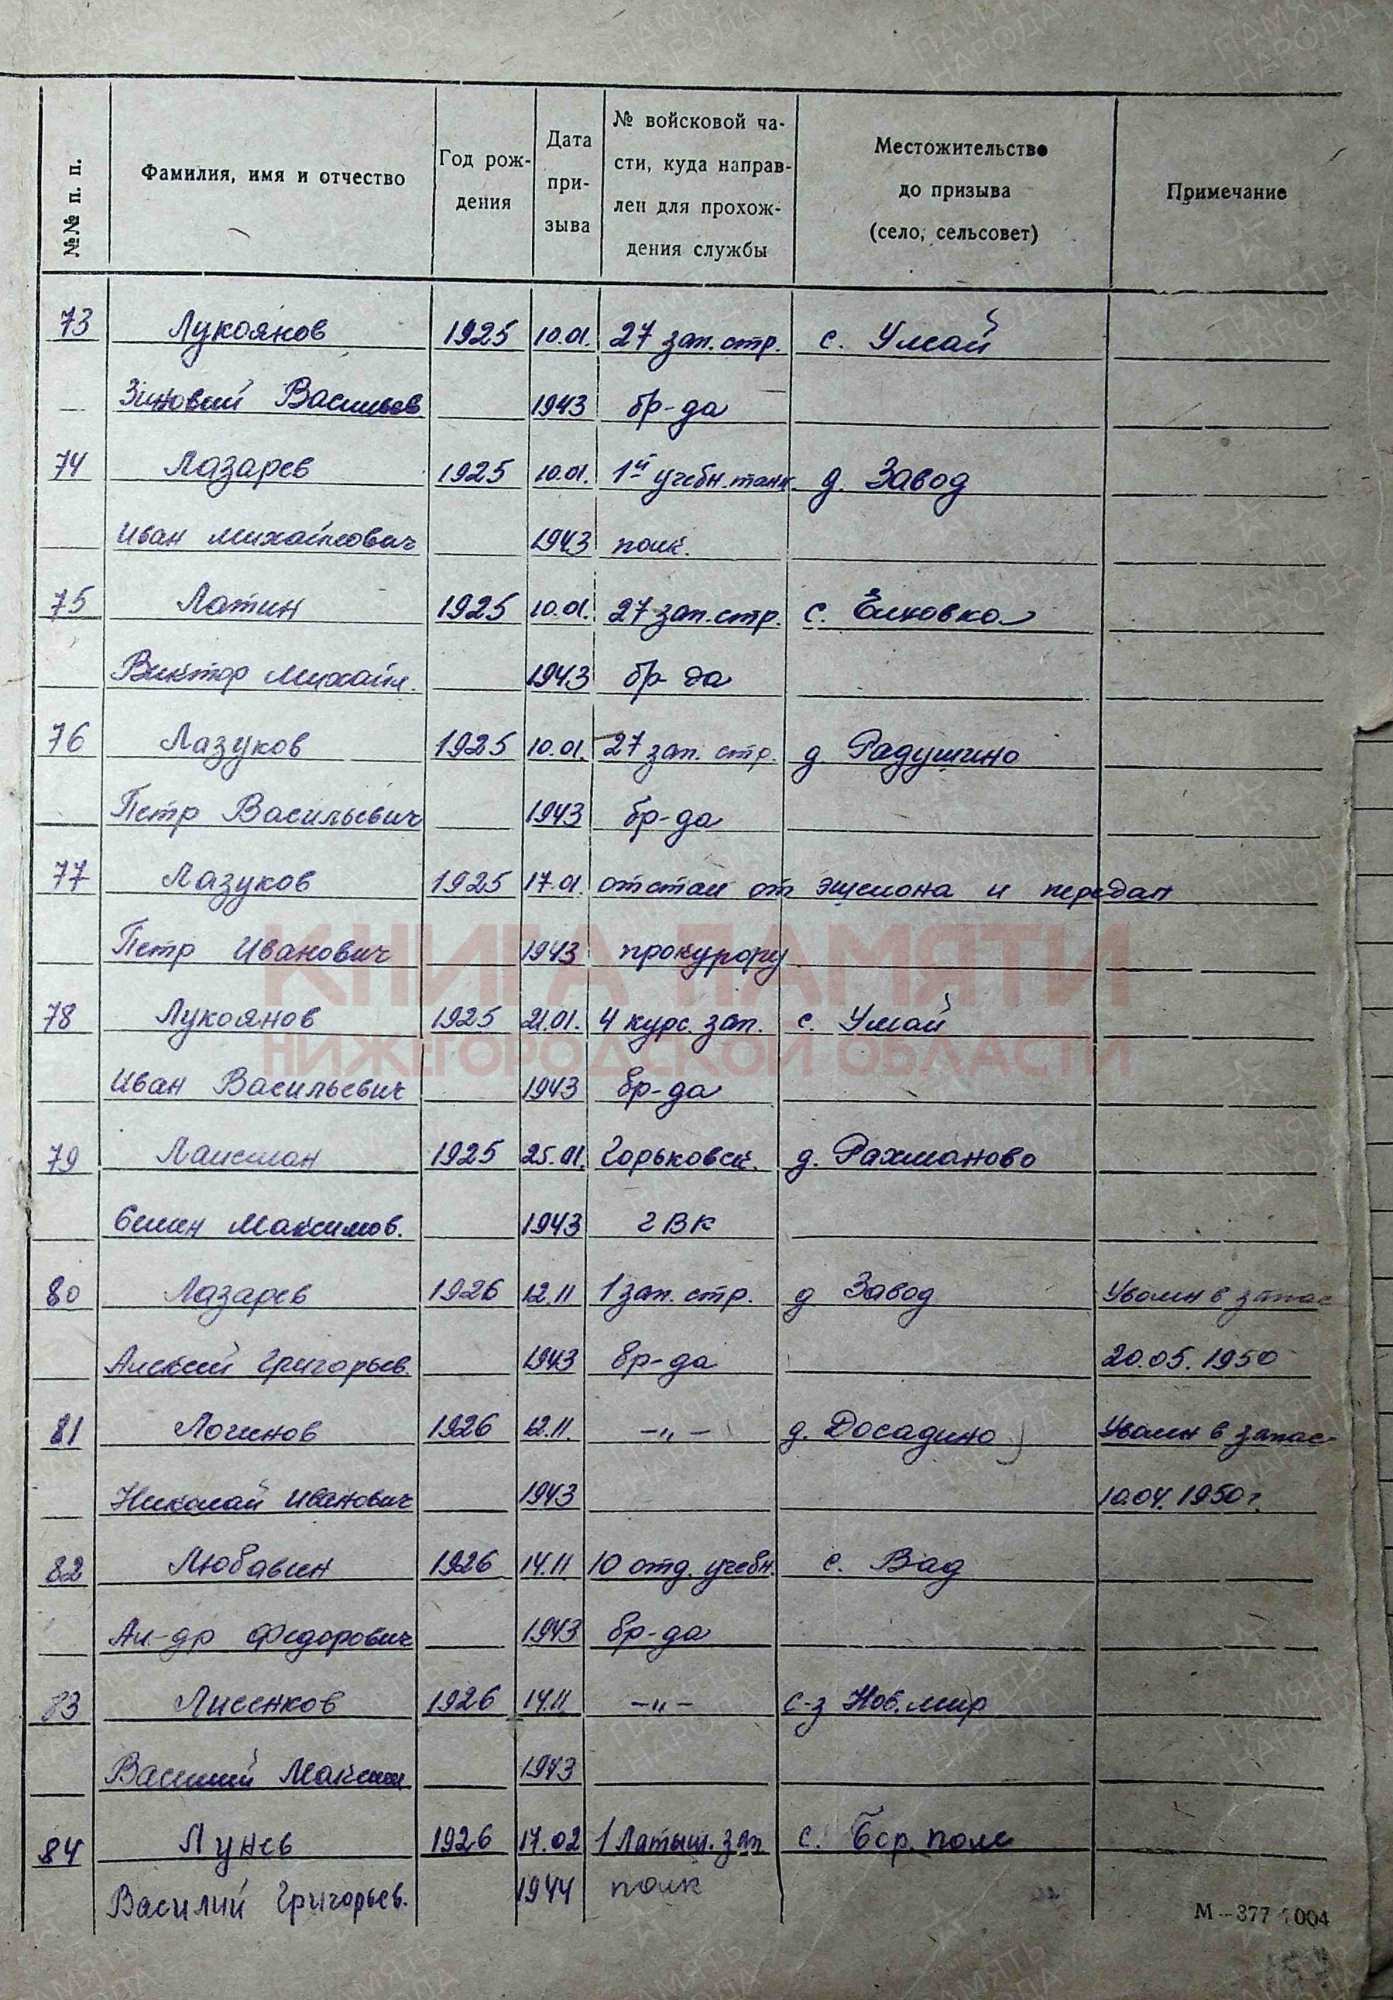 №№ п. п.
Фамилия, имя и отчество
Год рож-
дения
Дата
при-
зыва
№ войсковой ча-
сти, куда направ-
лен для прохож-
дения службы
Местожительство
до призыва
(село, сельсовет)
Примечание
73 Лукоянов 1925 10.01. 27 зап. стр. с. Умай
Зиновий Васильев 1943 бр-да
74 Лазарев 1925 10.01. 1й учебн. танк. д. Завод
Иван Михайлович 1943 полк.
75 Латин 1925 10.01. 27 зап. стр. с. Елховка
Виктор Михайл. 1943 бр-да
76 Лазуков 1925 10.01. 27 зап. стр. д Радушино
Петр Васильевич 1943 бр-да
77 Лазуков 1925 17.01. отстал от эшелона и передан
Петр Иванович 1943 прокурору
78 Лукоянов 1925 21.01. 4 курс. зап. с. Умай
Иван Васильевич 1943 бр-да
79 1925 25.01. Горьковск. д. Рахманово
Максимов. 1943 ГВК
80 Лазарев 1926 12.11 1 зап. стр. д Завод Уволен в запас
Алексей Григорьев. 1943 бр-да 20.05.1950
81 Логинов 1926 12.11. -„- д. Досадино Уволен в запас
Николай Иванович 1943 10.04.1950г.
82 Любавин 1926 14.11 10 отд. учебн. с. Вад
Ал-др Федорович 1943 бр-да
83 Лисенков 1926 14.11. -„- с-з Нов. мир
Василий Максим 1943
84 Лунев 1926 17.02 1 Латыш. зап с. Бер. поле
Василий Григорьев. 1944 полк
М-377 1004
КНИГА ПАМЯТИ
НИЖЕГОРОДСКОЙ ОБЛАСТИ
ПАМЯТЬ
НАРОДА